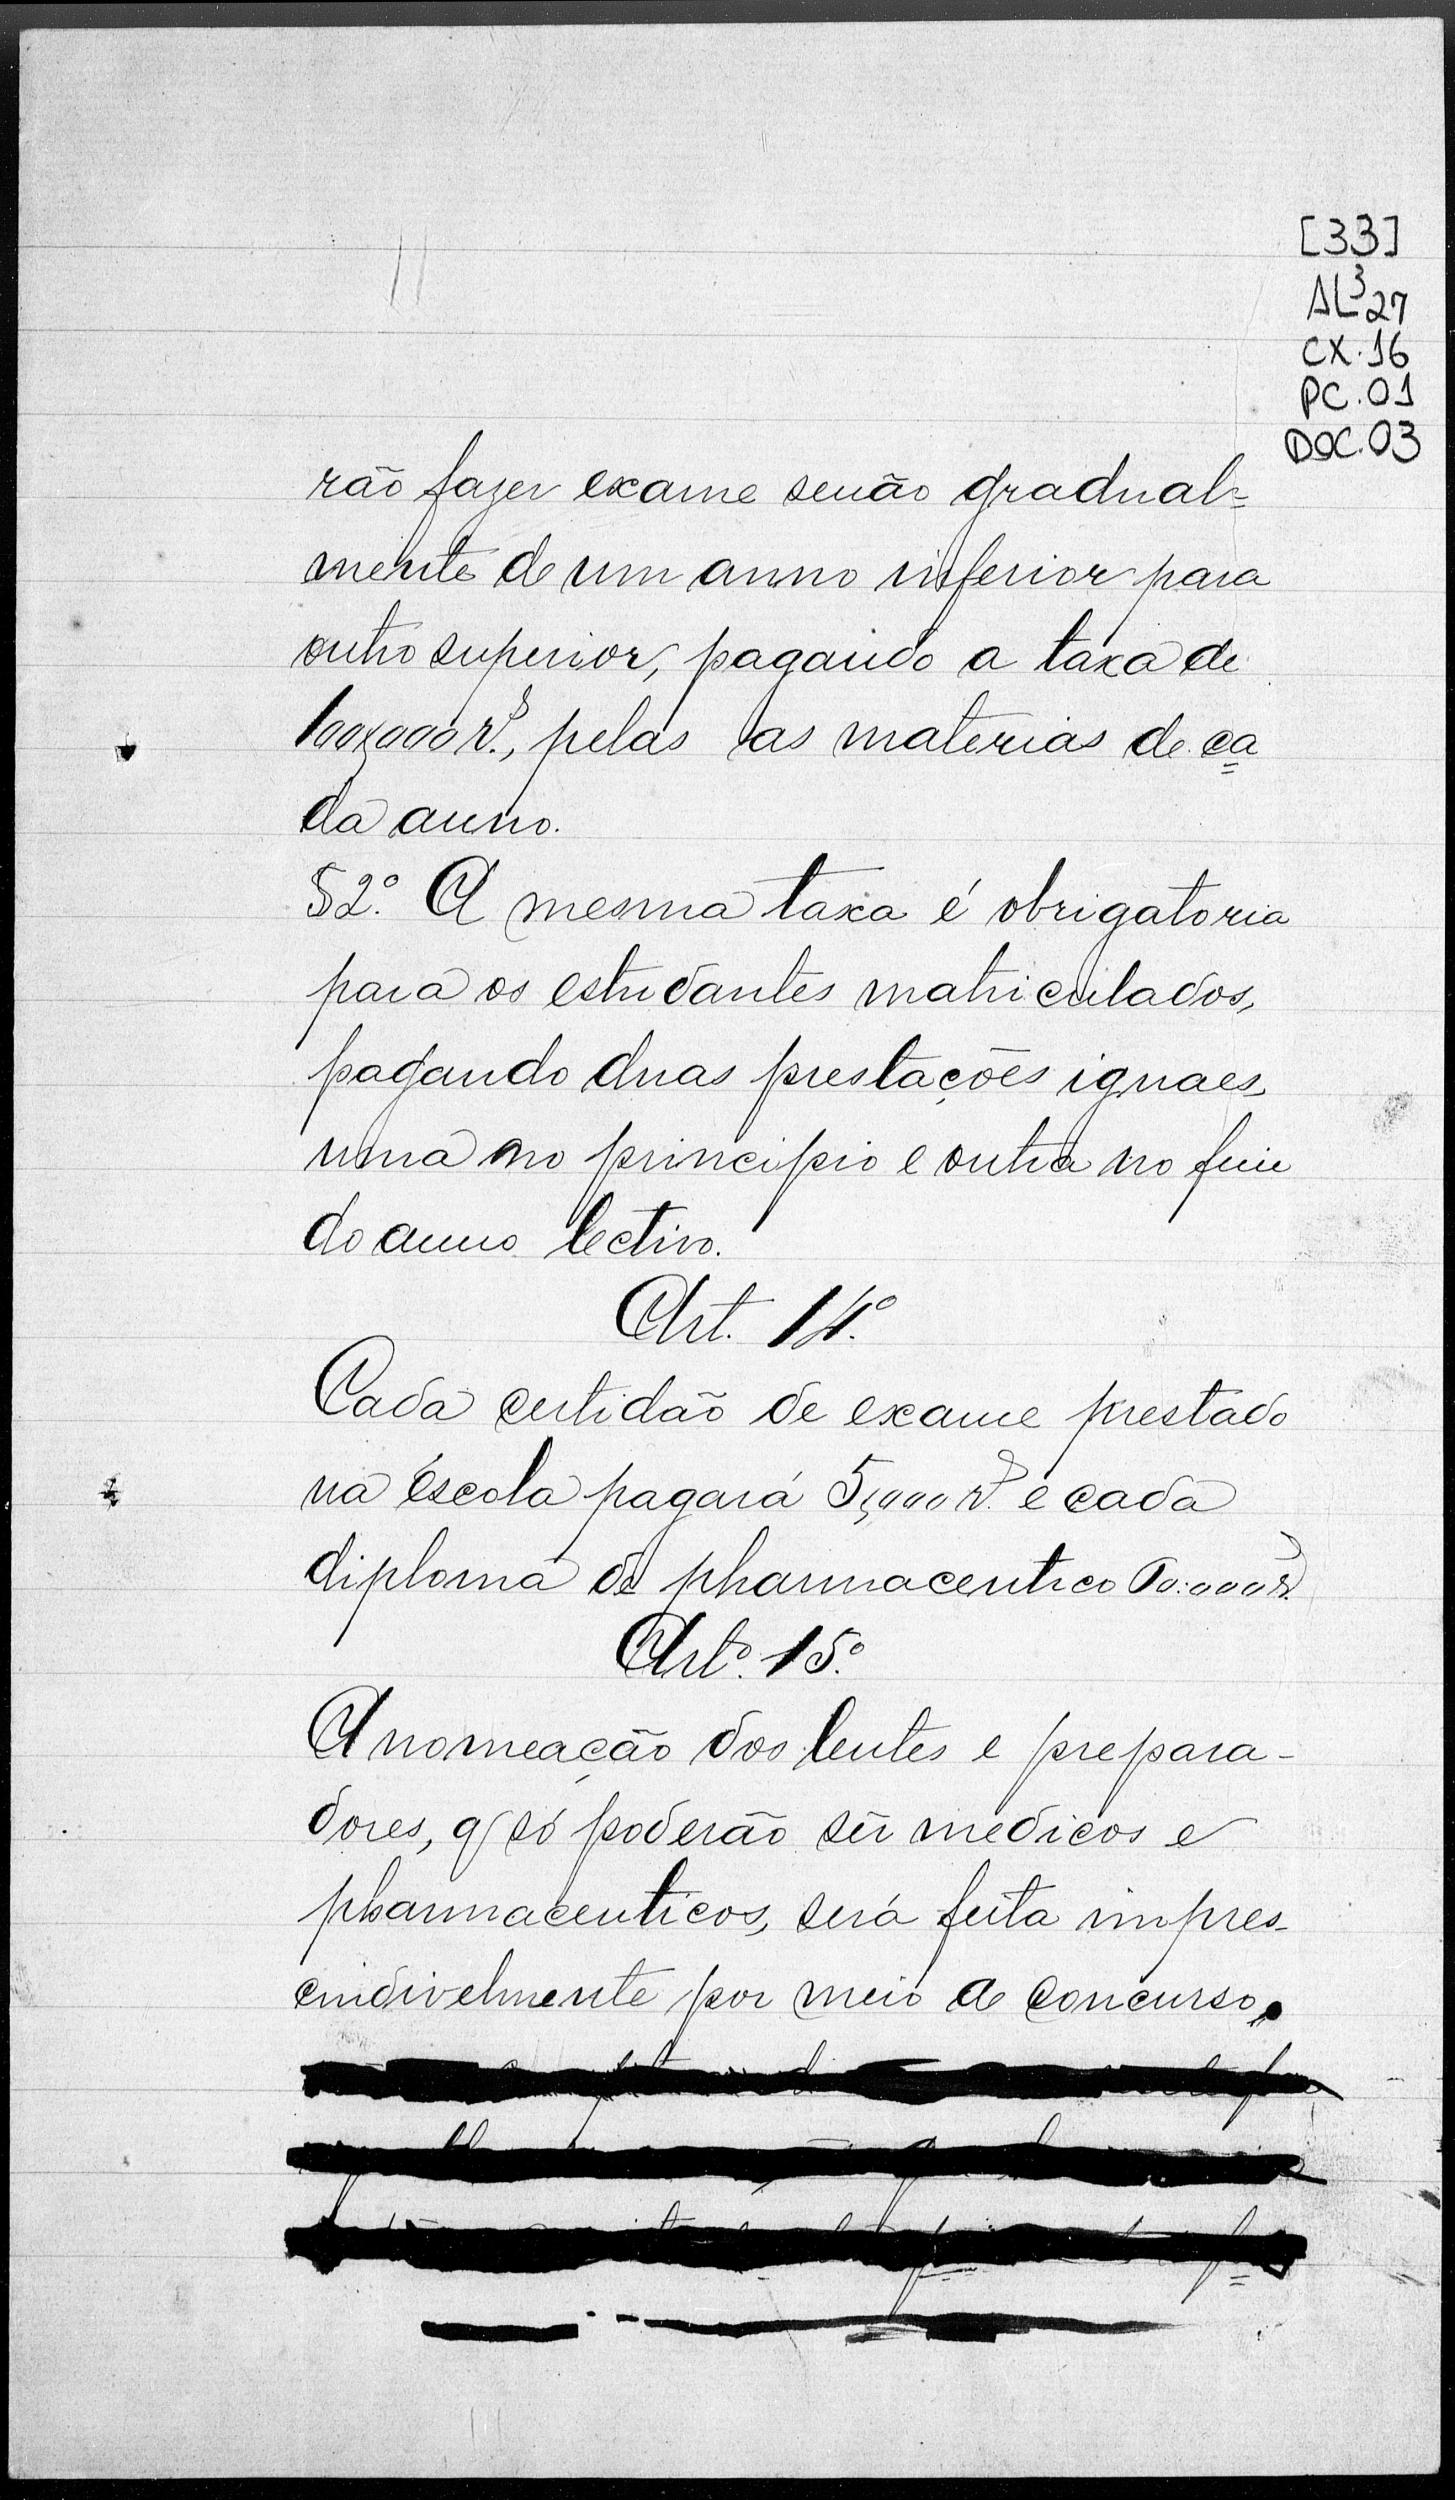 [33]
AL³27
CX.16
PC.01
DOC.03
rão fazer exame senão gradual=
mente de um anno inferior para
outro superior, pagando a taxa de
100,000 rs., pelas as materias de ca=
da anno.
§2º. A mesma taxa é obrigatoria
para os estudantes matriculados,
pagando duas prestações iguaes,
uma no principio e outra no fim
do anno lectivo.
Art. 14º.
Cada certidão de exame prestado
na escola pagará 5,000 rs. e cada
diploma de pharmaceutico
Artº. 15º.
A nomeação dos lentes e prepara-
dores, q só poderão ser medicos e
pharmaceuticos, será feita impres-
cindivelmente por meio de concurso.